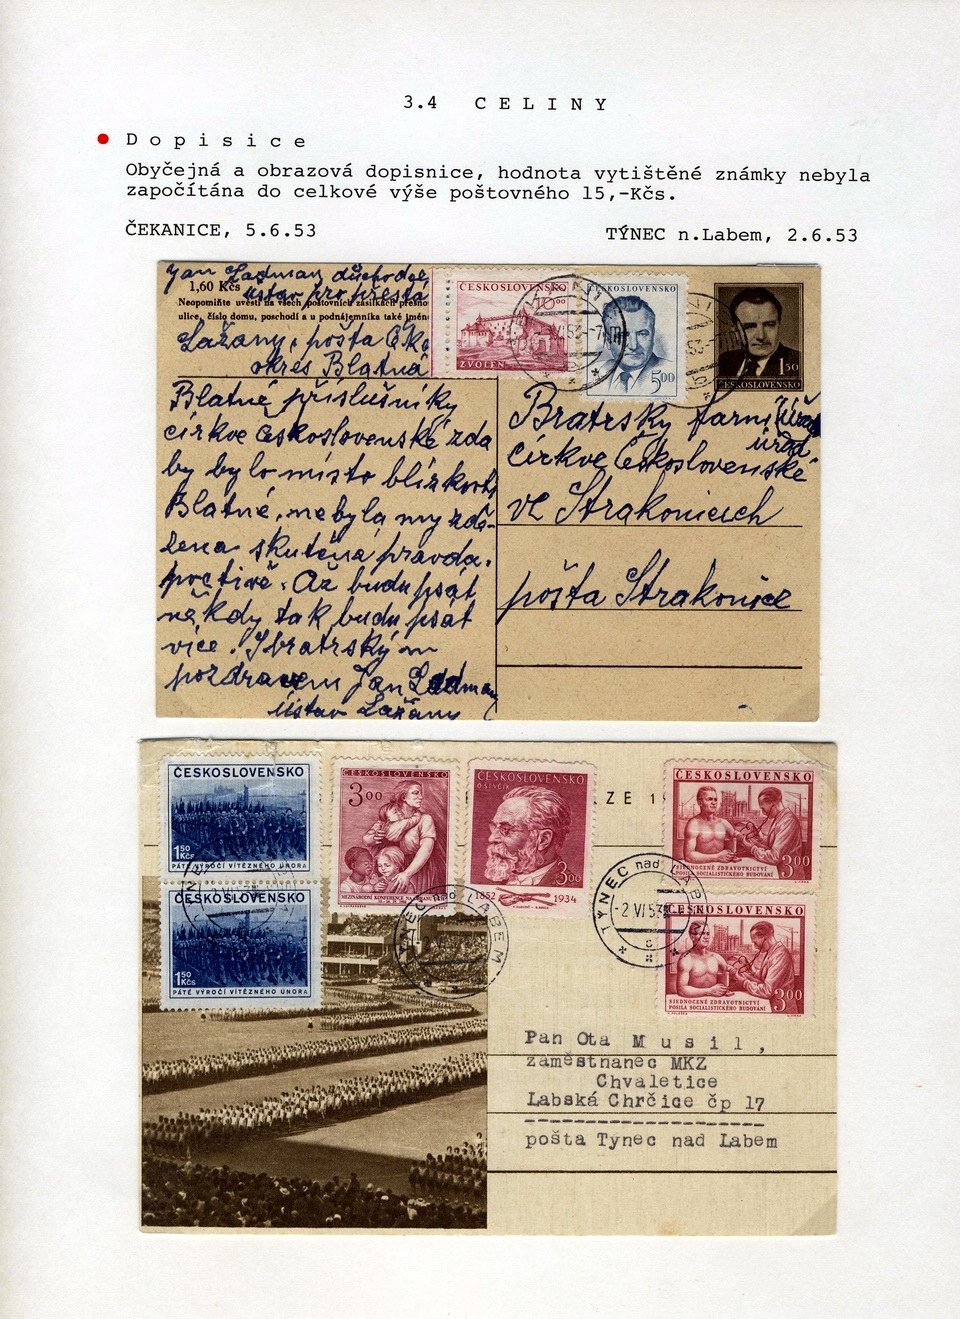 3.4 CELINY
Dopisice
Obyčejná a obrazová dopisnice, hodnota vytištěné známky nebyla
započítána do celkové výše poštovného 15,-Kčs.
ČEKANICE, 5.6.53
TÝNEC n.Labem, 2.6.53
Jan Ladman důchodce
ústav
1,60 Kčs
Neopomiňte uvésti na všech poštovních zásilkách přesno
ulice, číslo domu, poschodí a u podnájemníka také jméno
Lažany, pošta
okres Blatná
Blatné příslušníky
církve československé zda
by bylo místo blízkosti
Blatné, nebyla my zdě-
lena skutečná pravda.
poctivě. Až budu psát
někdy tak budu psát
více. S bratrským
pozdravem Jan Ladman
Ústav Lažany
ČESKOSLOVENSKO
10 00
ZVOLEN
ČESKOSLOVENSKO
5 00
1 50
ČESKOSLOVENSKO
Bratrsky farní
úřad
církve Československé
ve Strakonicích
pošta Strakonice
ČESKOSLOVENSKO
1 50 Kčs
PÁTÉ VÝROČÍ VÍTĚZNÉHO ÚNORA
ČESKOSLOVENSKO
1 50 Kčs
PÁTÉ VÝROČÍ VÍTĚZNÉHO ÚNORA
ČESKOSLOVENSKO
3 00
MEZINÁRODNÍ KONFERENCE NA OBRANU DĚTÍ
ČESKOSLOVENSKO
O. ŠEVČÍK
3 00
1852 1934
ZE 1
ČESKOSLOVENSKO
SJEDNOCENÉ ZDRAVOTNICTVÍ
POSILA SOCIALISTICKÉHO BUDOVÁNÍ
3 00
ČESKOSLOVENSKO
SJEDNOCENÉ ZDRAVOTNICTVÍ
POSILA SOCIALISTICKÉHO BUDOVÁNÍ
3 00
TÝNEC nad LABEM
-2.VI.53
TÝNEC nad LABEM
-2.VI.53
c
Pan Ota Musil,
zaměstnanec MKZ
Chvaletice
Labská Chrčice čp 17
pošta Tynec nad Labem